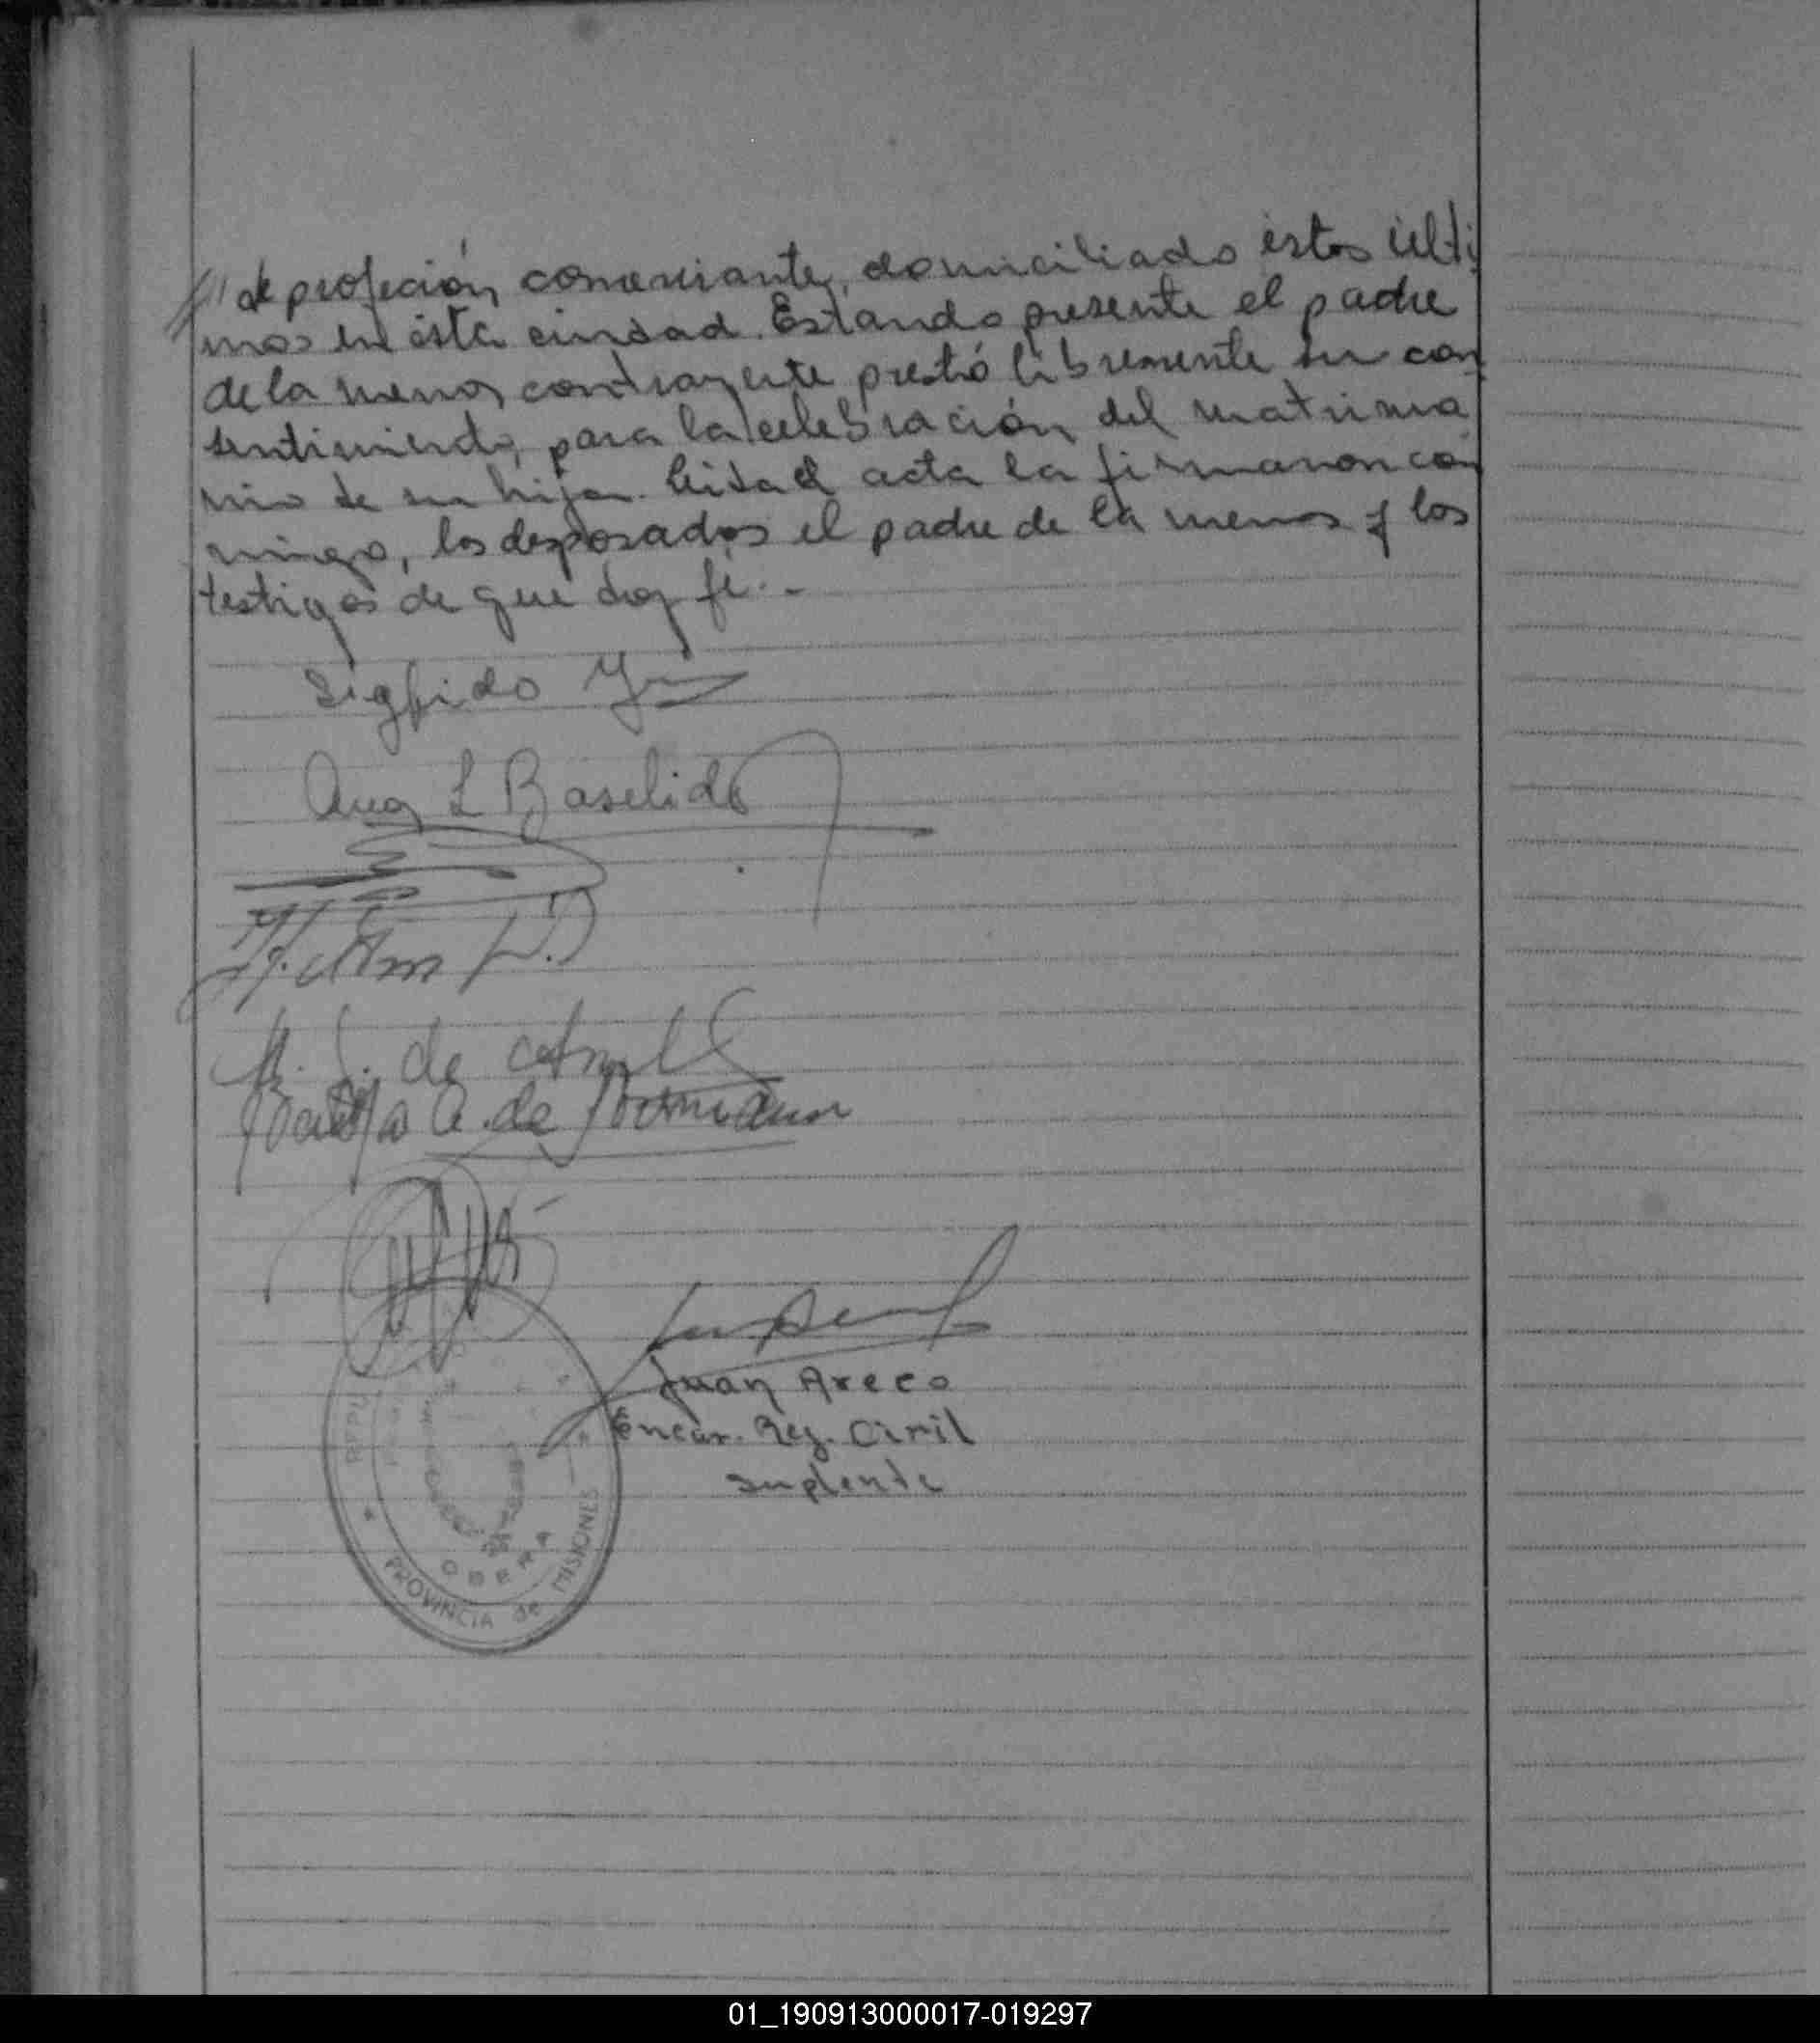 /// de profeción comerciante, domiciliado éstos últi
mos en ésta ciudad. Estando presente el padre
de la menor contrayente prestó libremente su con
sentimiento, para la celebración del matrimo
nio de su hija. Leida el acta la firmaron con
migo, los desposados el padre de la menor y los
testigos de que doy fé. -
Sigfrido
L Baselido
de
de
Juan Areco
Encar. Reg. Civil
Suplente
REPU
OBERA
PROVINCIA de MISIONES
01_190913000017-019297